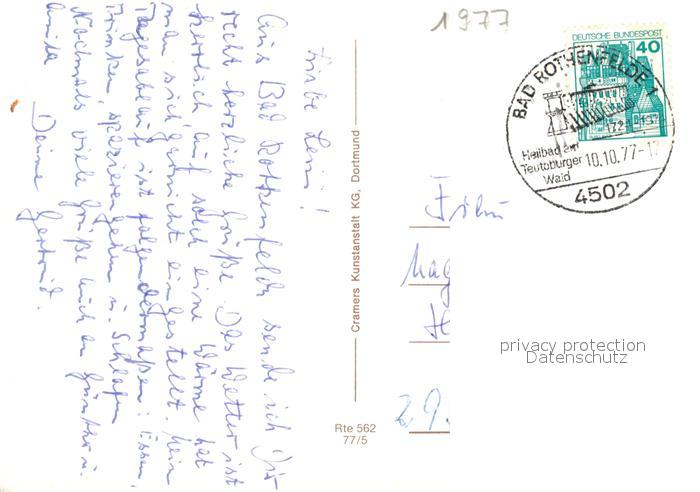 Liebe Leni!
Aus Bad Rothenfelde sende ich Dir
recht herzliche Grüße. Das Wetter ist
herrlich auf solch eine Wärme hat
man sich gar nicht eingestellt. Mein
Tagesablauf ist folgendermaßen: Essen,
Trinken, spazierengehen u. Schlafen
Nochmals viele Grüße auch an Günther u.
Anita Deine Gertrud.
Cramers Kunstanstalt KG, Dortmund
Rte 562
77/5
1977
DEUTSCHE BUNDESPOST
40
BAD ROTHENFELDE 1
1724 1974
Heilbad am
Teutoburger
Wald
10.10.77-17
4502
Frau
29.
privacy protection
Datenschutz